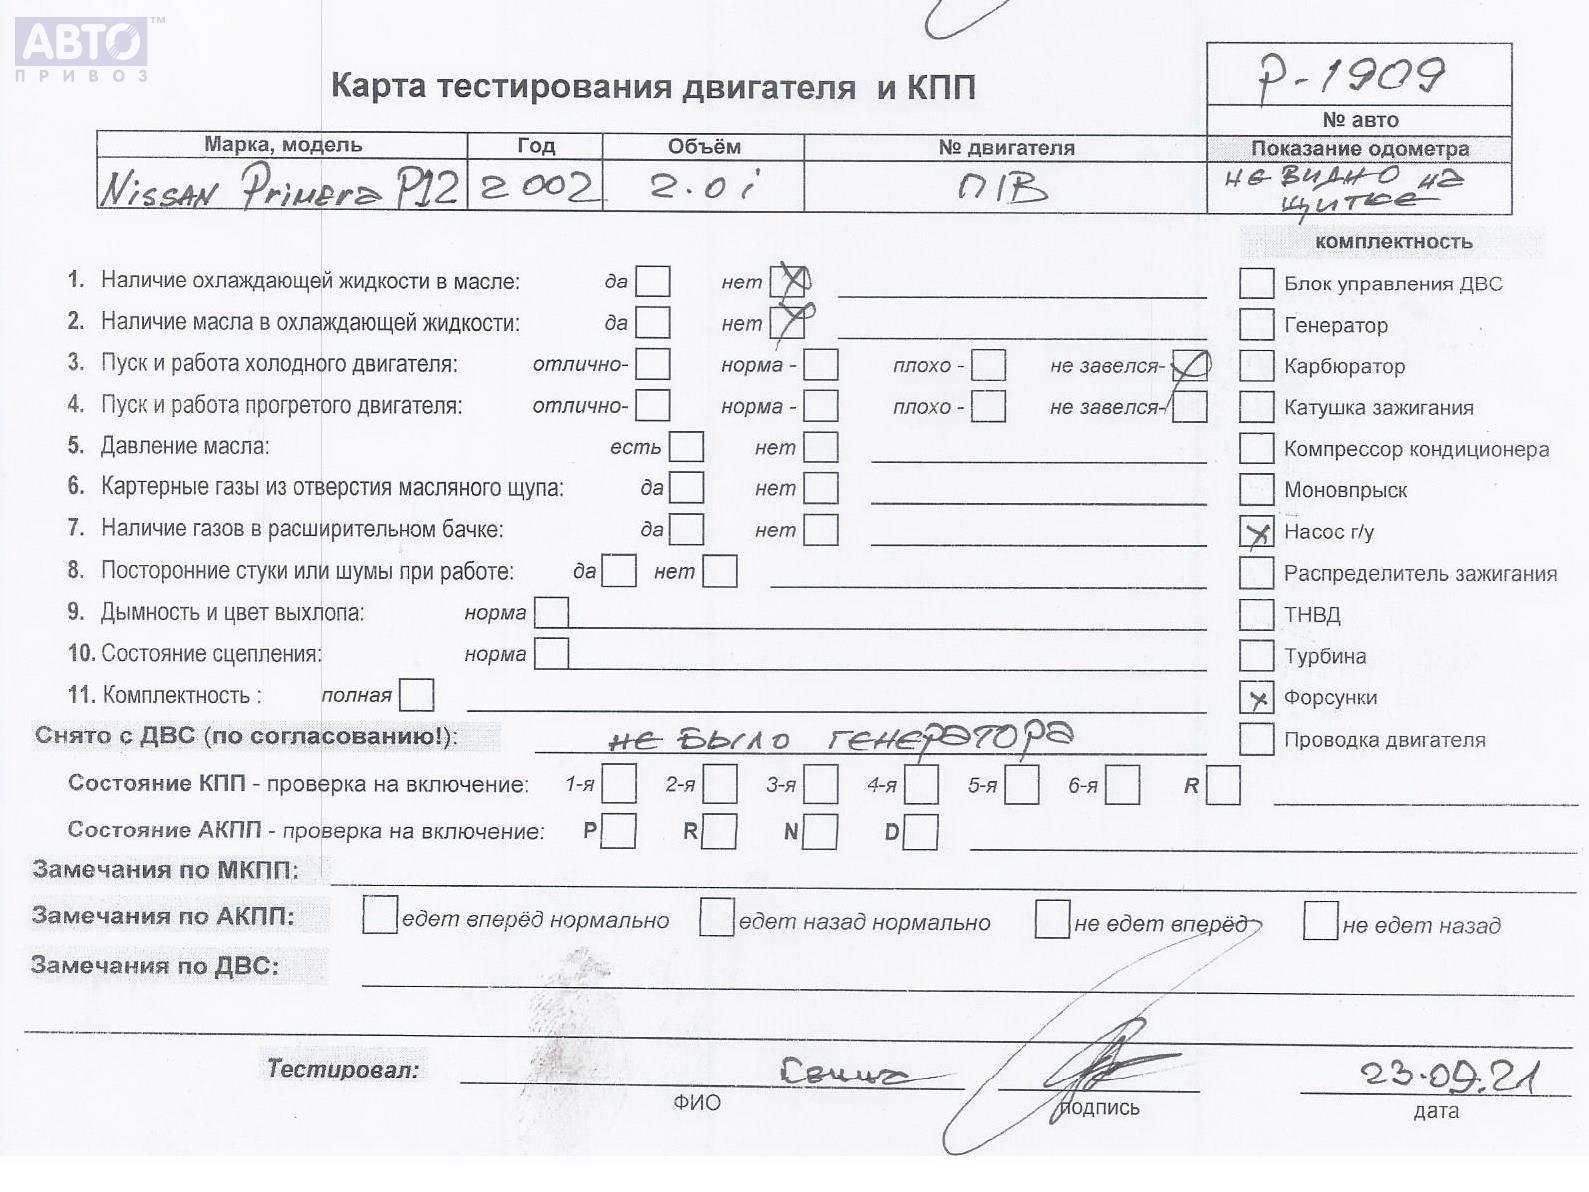 АВТО™
ПРИВОЗ
Карта тестирования двигателя и КПП
P-1909
№ авто
Марка, модель Год Объём № двигателя Показание одометра
Nissan Primera P12 2002 2.0i П/В не видно на
щитке
комплектность
1. Наличие охлаждающей жидкости в масле: да нет Блок управления ДВС
2. Наличие масла в охлаждающей жидкости: да нет Генератор
3. Пуск и работа холодного двигателя: отлично- норма - плохо - не завелся- Карбюратор
4. Пуск и работа прогретого двигателя: отлично- норма - плохо - не завелся- Катушка зажигания
5. Давление масла: есть нет Компрессор кондиционера
6. Картерные газы из отверстия масляного щупа: да нет Моновпрыск
7. Наличие газов в расширительном бачке: да нет Насос г/у
8. Посторонние стуки или шумы при работе: да нет Распределитель зажигания
9. Дымность и цвет выхлопа: норма ТНВД
10. Состояние сцепления: норма Турбина
11. Комплектность : полная Форсунки
Снято с ДВС (по согласованию!): не было генератора Проводка двигателя
Состояние КПП - проверка на включение: 1-я 2-я 3-я 4-я 5-я 6-я R
Состояние АКПП - проверка на включение: P R N D
Замечания по МКПП:
Замечания по АКПП: едет вперёд нормально едет назад нормально не едет вперёд не едет назад
Замечания по ДВС:
Тестировал: 23.09.21
ФИО подпись дата